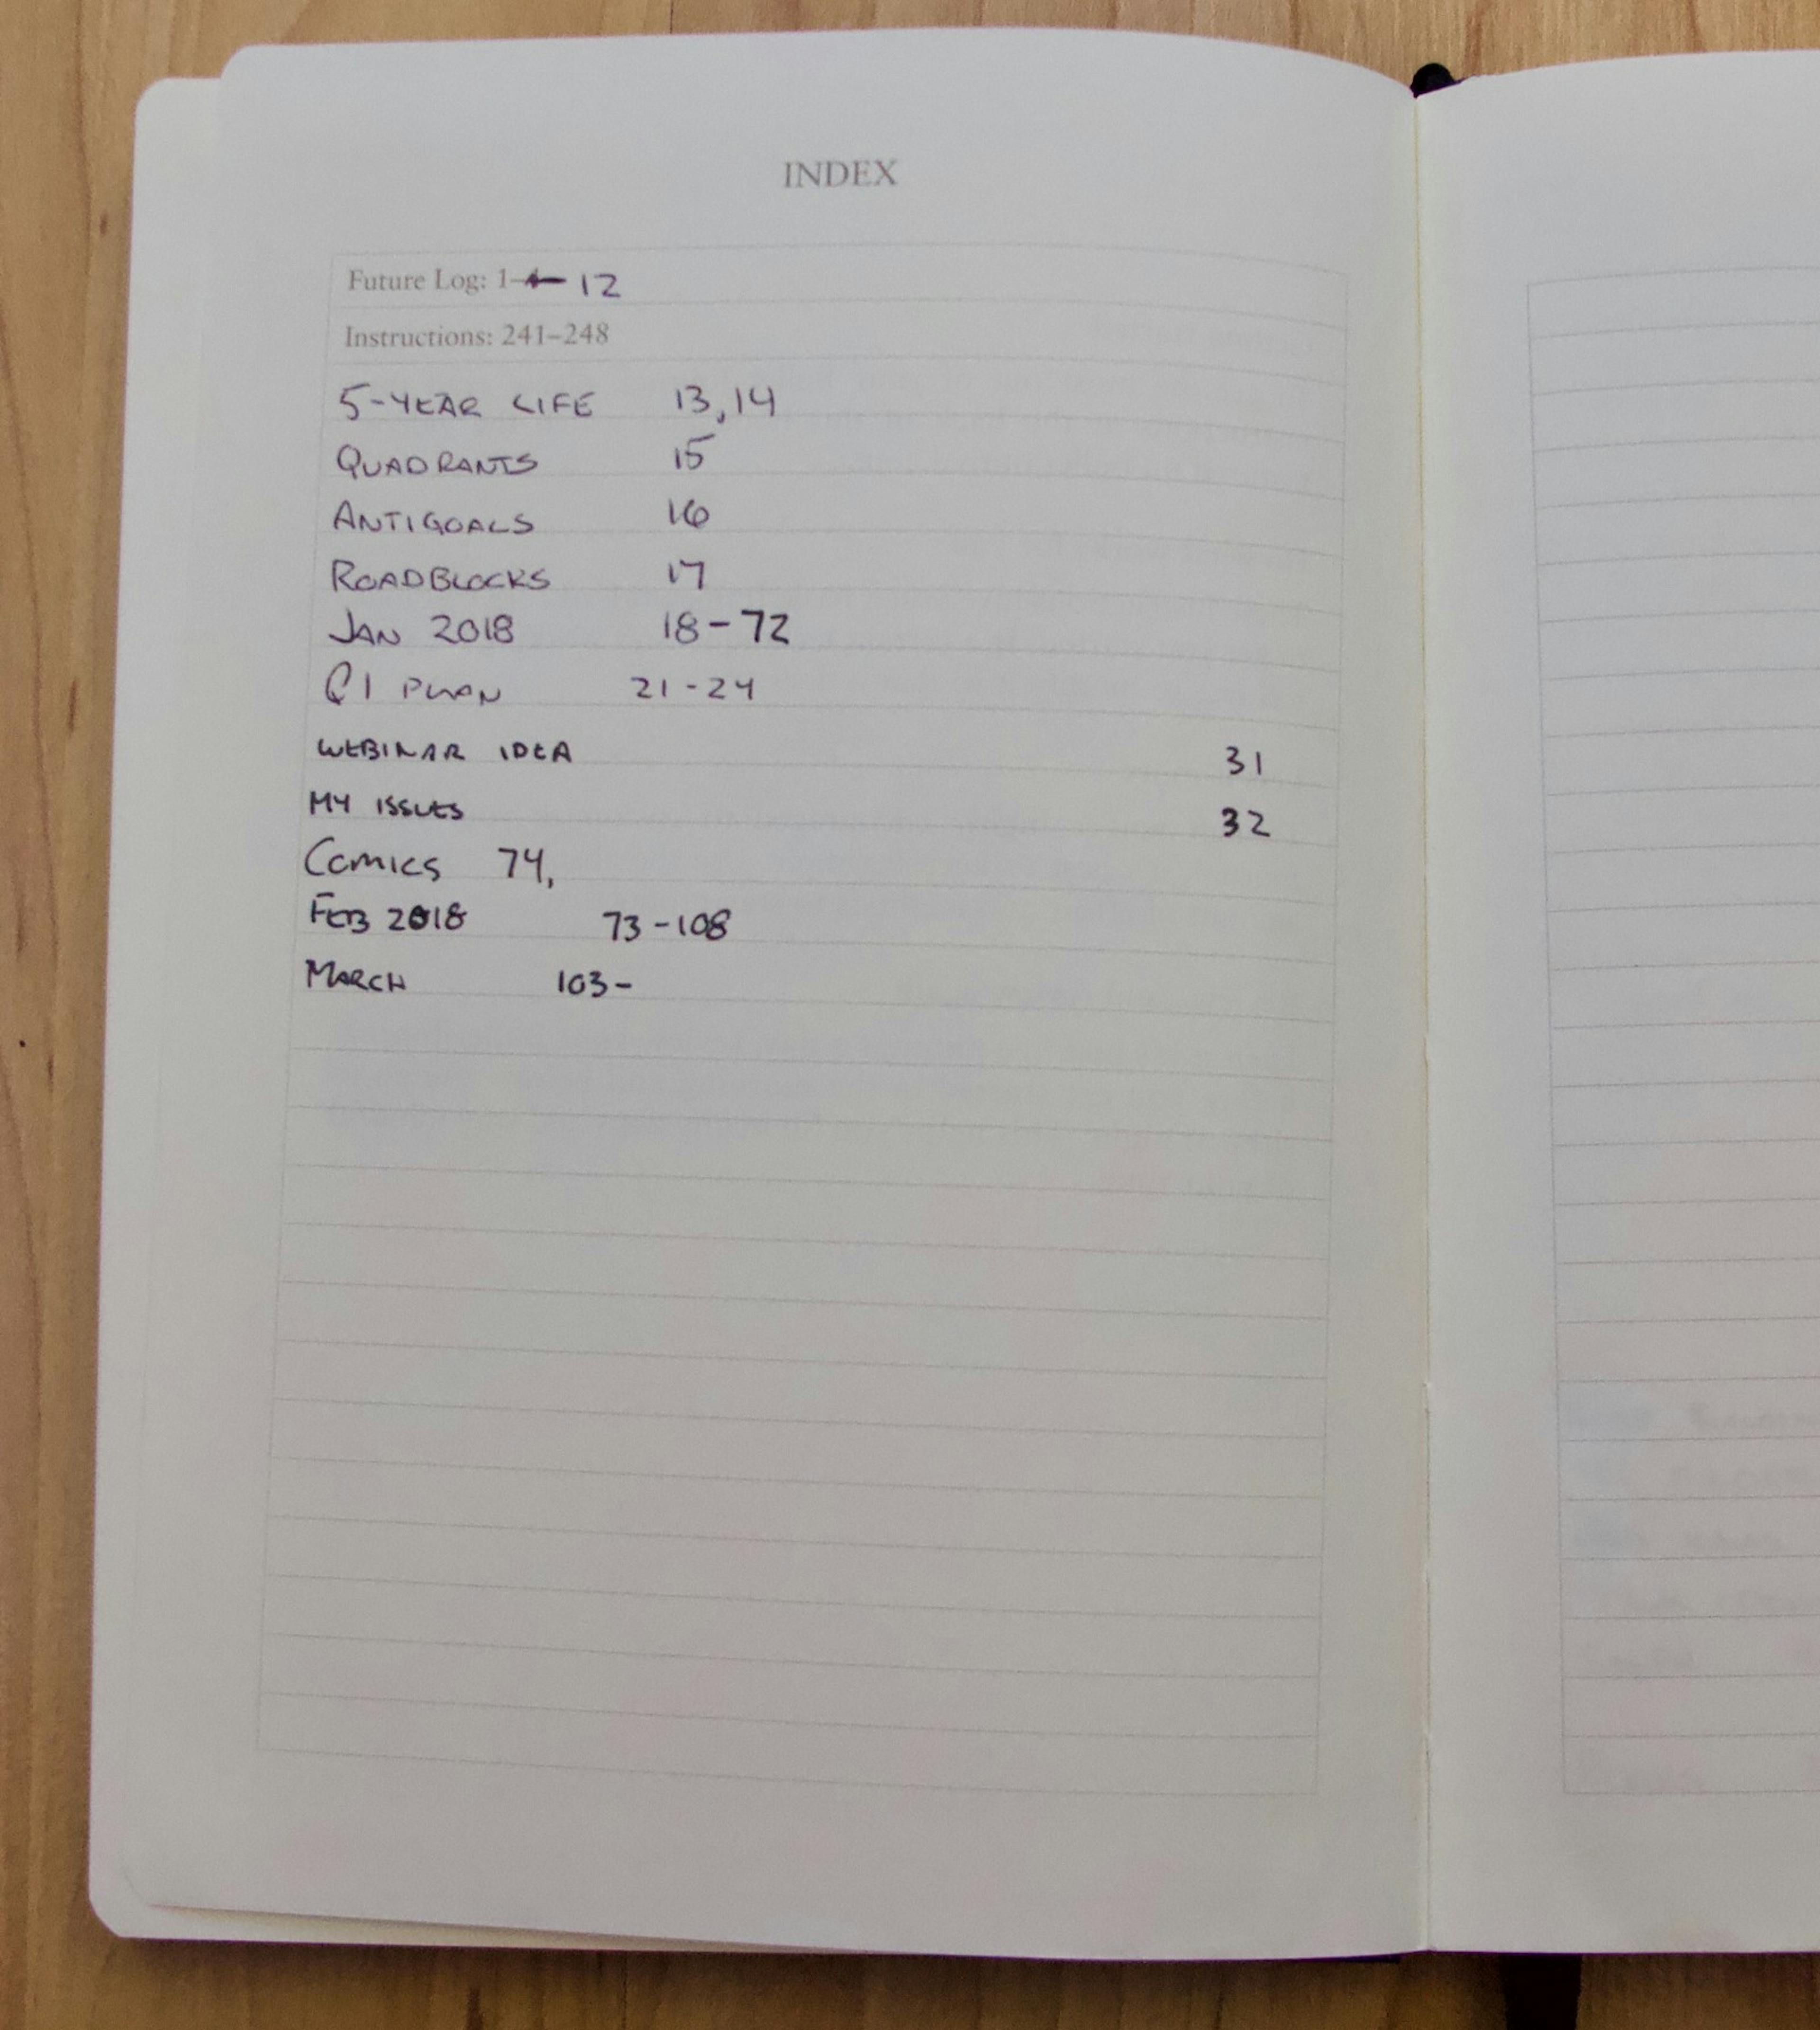 INDEX
Future Log: 1– 12
Instructions: 241–248
5-YEAR LIFE 13, 14
QUADRANTS 15
ANTIGOALS 16
ROADBLOCKS 17
JAN 2018 18-72
Q1 PLAN 21-24
WEBINAR IDEA 31
MY ISSUES 32
COMICS 74,
FEB 2018 73-108
MARCH 103-